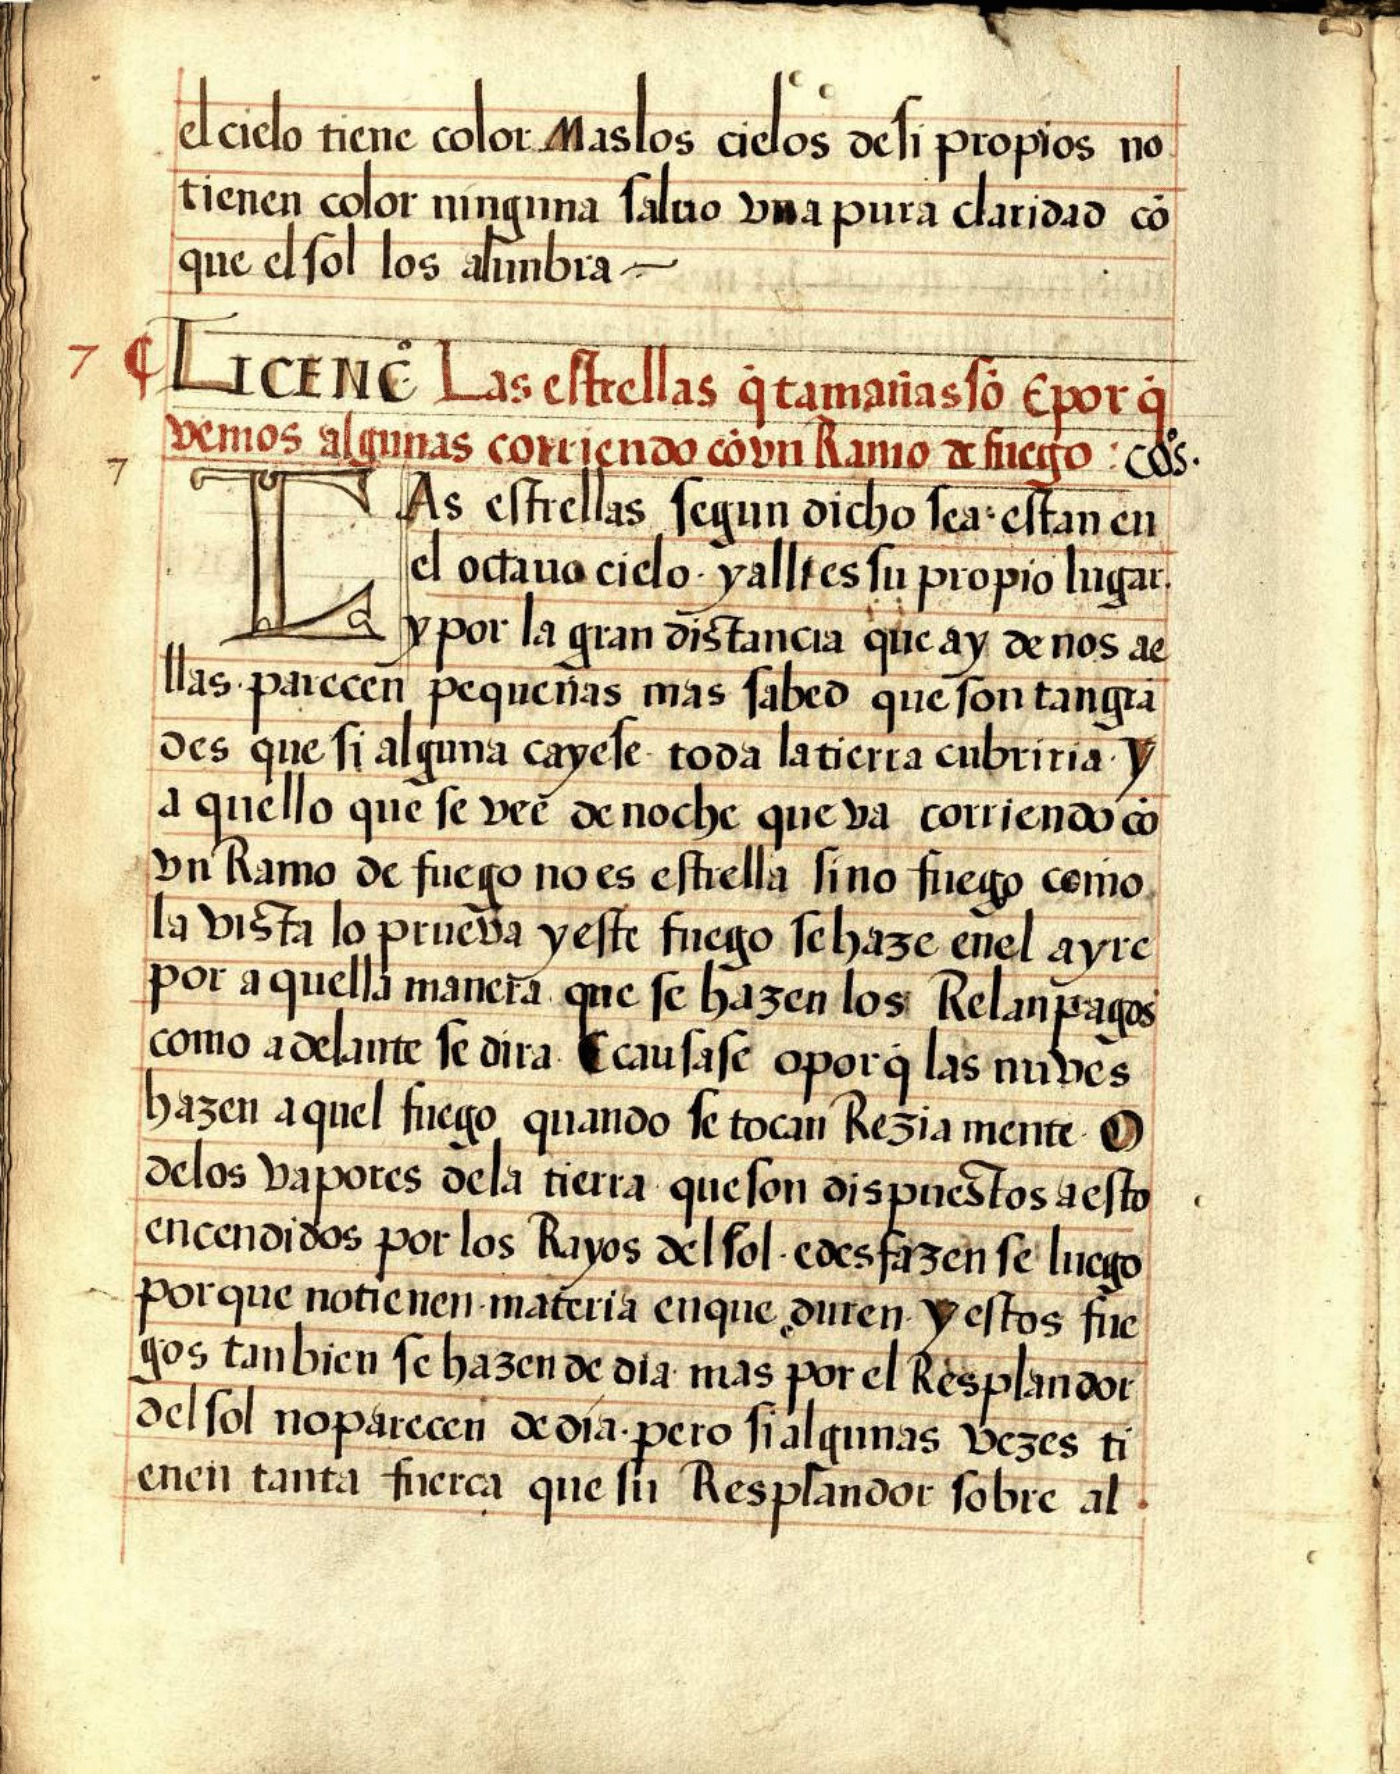 el cielo tiene color Mas los cielos desi propios no
tienen color ninguna saluo vna pura claridad cō
que el sol los alunbra
7 ¶ LICENC̄º Las estrellas q̇ tamañas sō E por q̇
vemos algunas corriendo cō vn Ramo de fuego : cōs.
7 LAs estrellas segun dicho sea· estan en
el octauo cielo· y alli es su propio lugar.
y por la gran distancia que ay de nos ae
llas· parecen pequeñas mas sabed que son tan grā
des que si alguna cayese· toda la tierra cubriria· Y
a quello que se vee de noche que va corriendo cō
vn Ramo de fuego no es estrella sino fuego como
la vista lo prueva y este fuego se haze enel ayre
por a quella manera que se hazen los Relanpagos
como adelante se dira· ¶ causase o por q̇ las nuves
hazen a quel fuego quando se tocan Rezia mente· O
delos vapores dela tierra que son dispuestos a esto
encendidos por los Rayos del sol· e desfazen se luego
por que no tienen materia en que duren· y estos fue
gos tan bien se hazen de dia· mas por el Resplandor
del sol no parecen de dia· pero si algunas vezes ti
enen tanta fuerça que su Resplandor sobre al